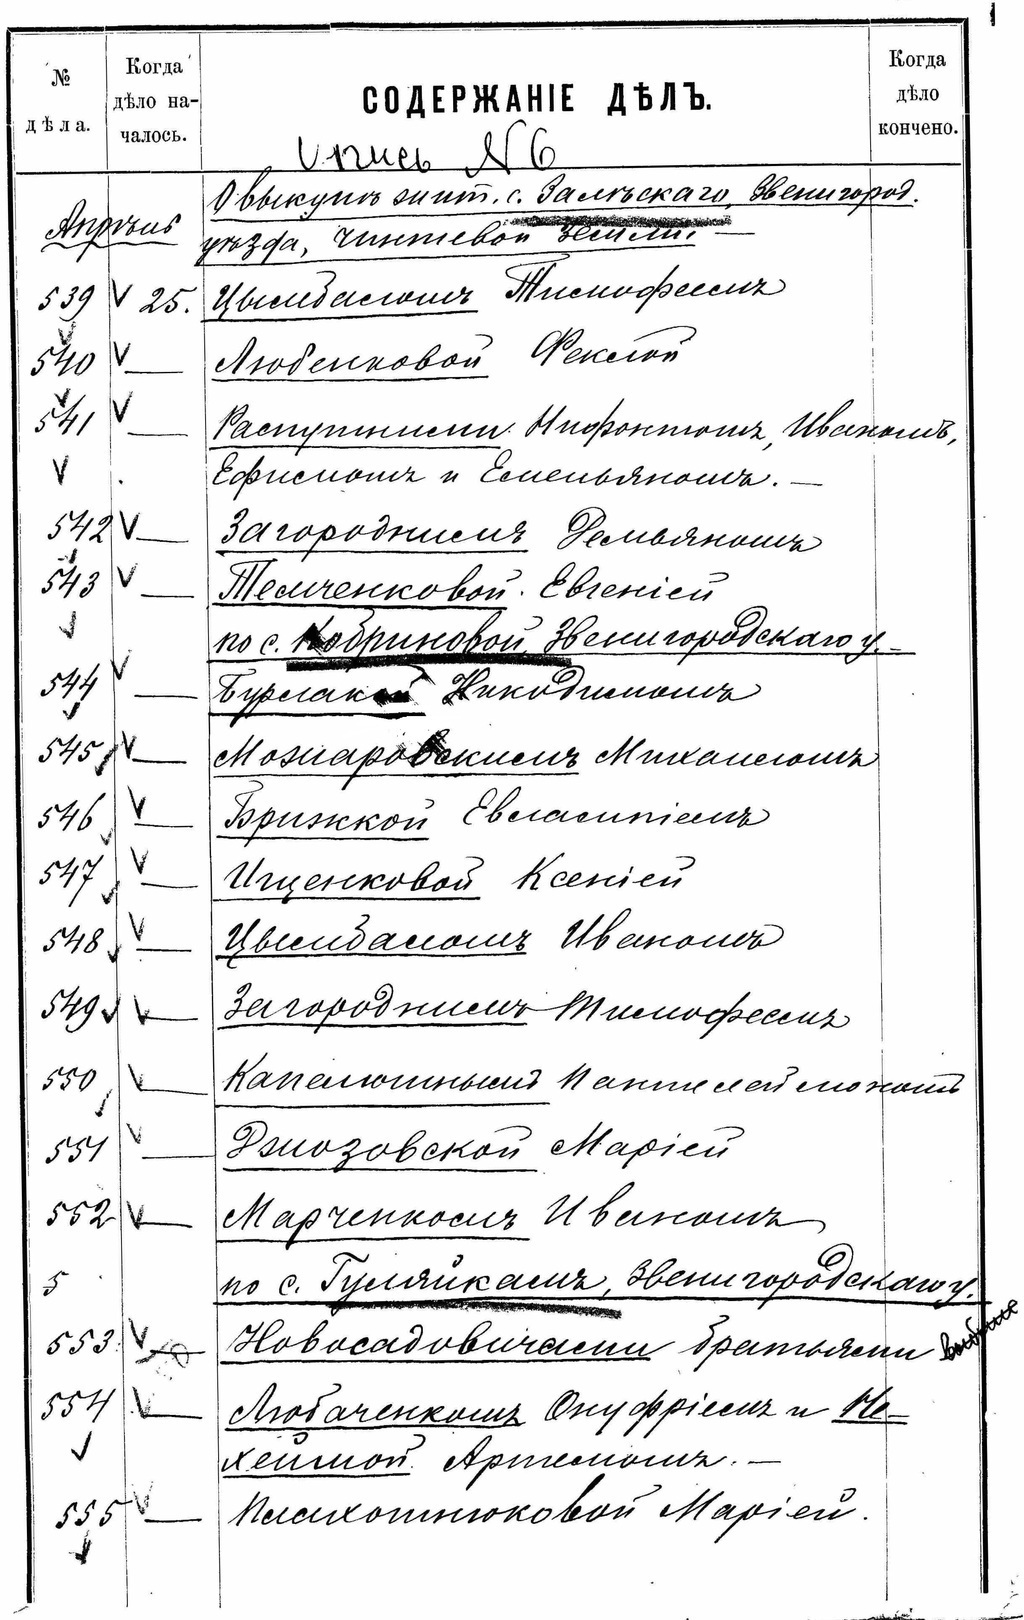 № дѣла.
Когда дѣло началось.
СОДЕРЖАНІЕ ДѢЛЪ.
Когда дѣло кончено.
Опись N 6
О выкупѣ жит. с. Залѣскаго, Звенигород.
Апрѣль уѣзда, чиншевой земли. —
539 V 25. Цымбаломъ Тимофеемъ
540 V — Любенковой Феклой
541 V — Распутними Нифонтомъ, Иваномъ,
V Ефимомъ и Емельяномъ. —
542 V — Загороднимъ Демьяномъ
543 V — Темченковой Евгеніей
по с. Кобриновой, Звенигородскаго у. —
544 V — Бурлакой Никодимомъ
545 V — Можаровскимъ Михаиломъ
546 V — Брижкой Евлампіемъ
547 V — Ищенковой Ксеніей
548 V — Цымбаломъ Иваномъ
549 V — Загороднимъ Тимофеемъ
550 V — Капелюшнымъ Пантелеймономъ
551 V — Дмозовской Маріей
552 V — Марченкомъ Иваномъ
5 по с. Гуляйкамъ, Звенигородскаго у.
553 V — Новосадовичами братьями
554 V — Любаченкомъ Онуфріемъ и Не-
хеймой Артемомъ. —
555 V — Плахотнюковой Маріей.